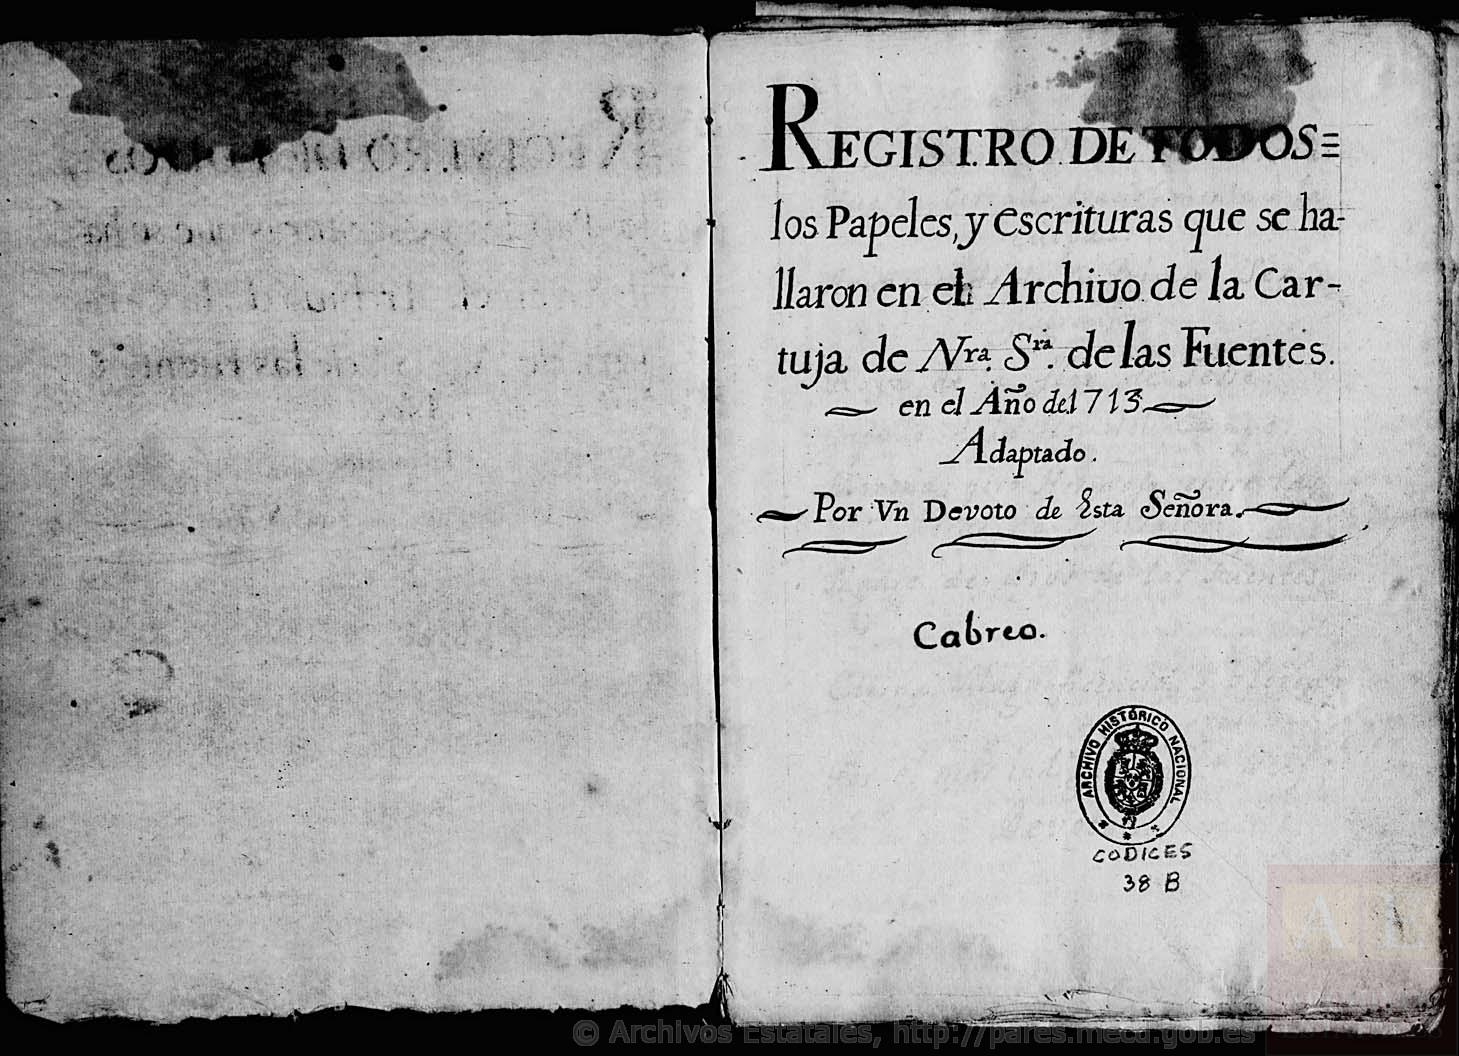 REGISTRO DE TODOS=
los Papeles, y escrituras que se ha-
llaron en el Archiuo de la Car-
tuja de Nra. Sra. de las Fuentes.
en el Año del 1713
Adaptado.
Por Vn Devoto de Esta Señora.
Cabreo.
ARCHIVO HISTÓRICO NACIONAL
CODICES
38 B
© Archivos Estatales, http://pares.mecd.gob.es